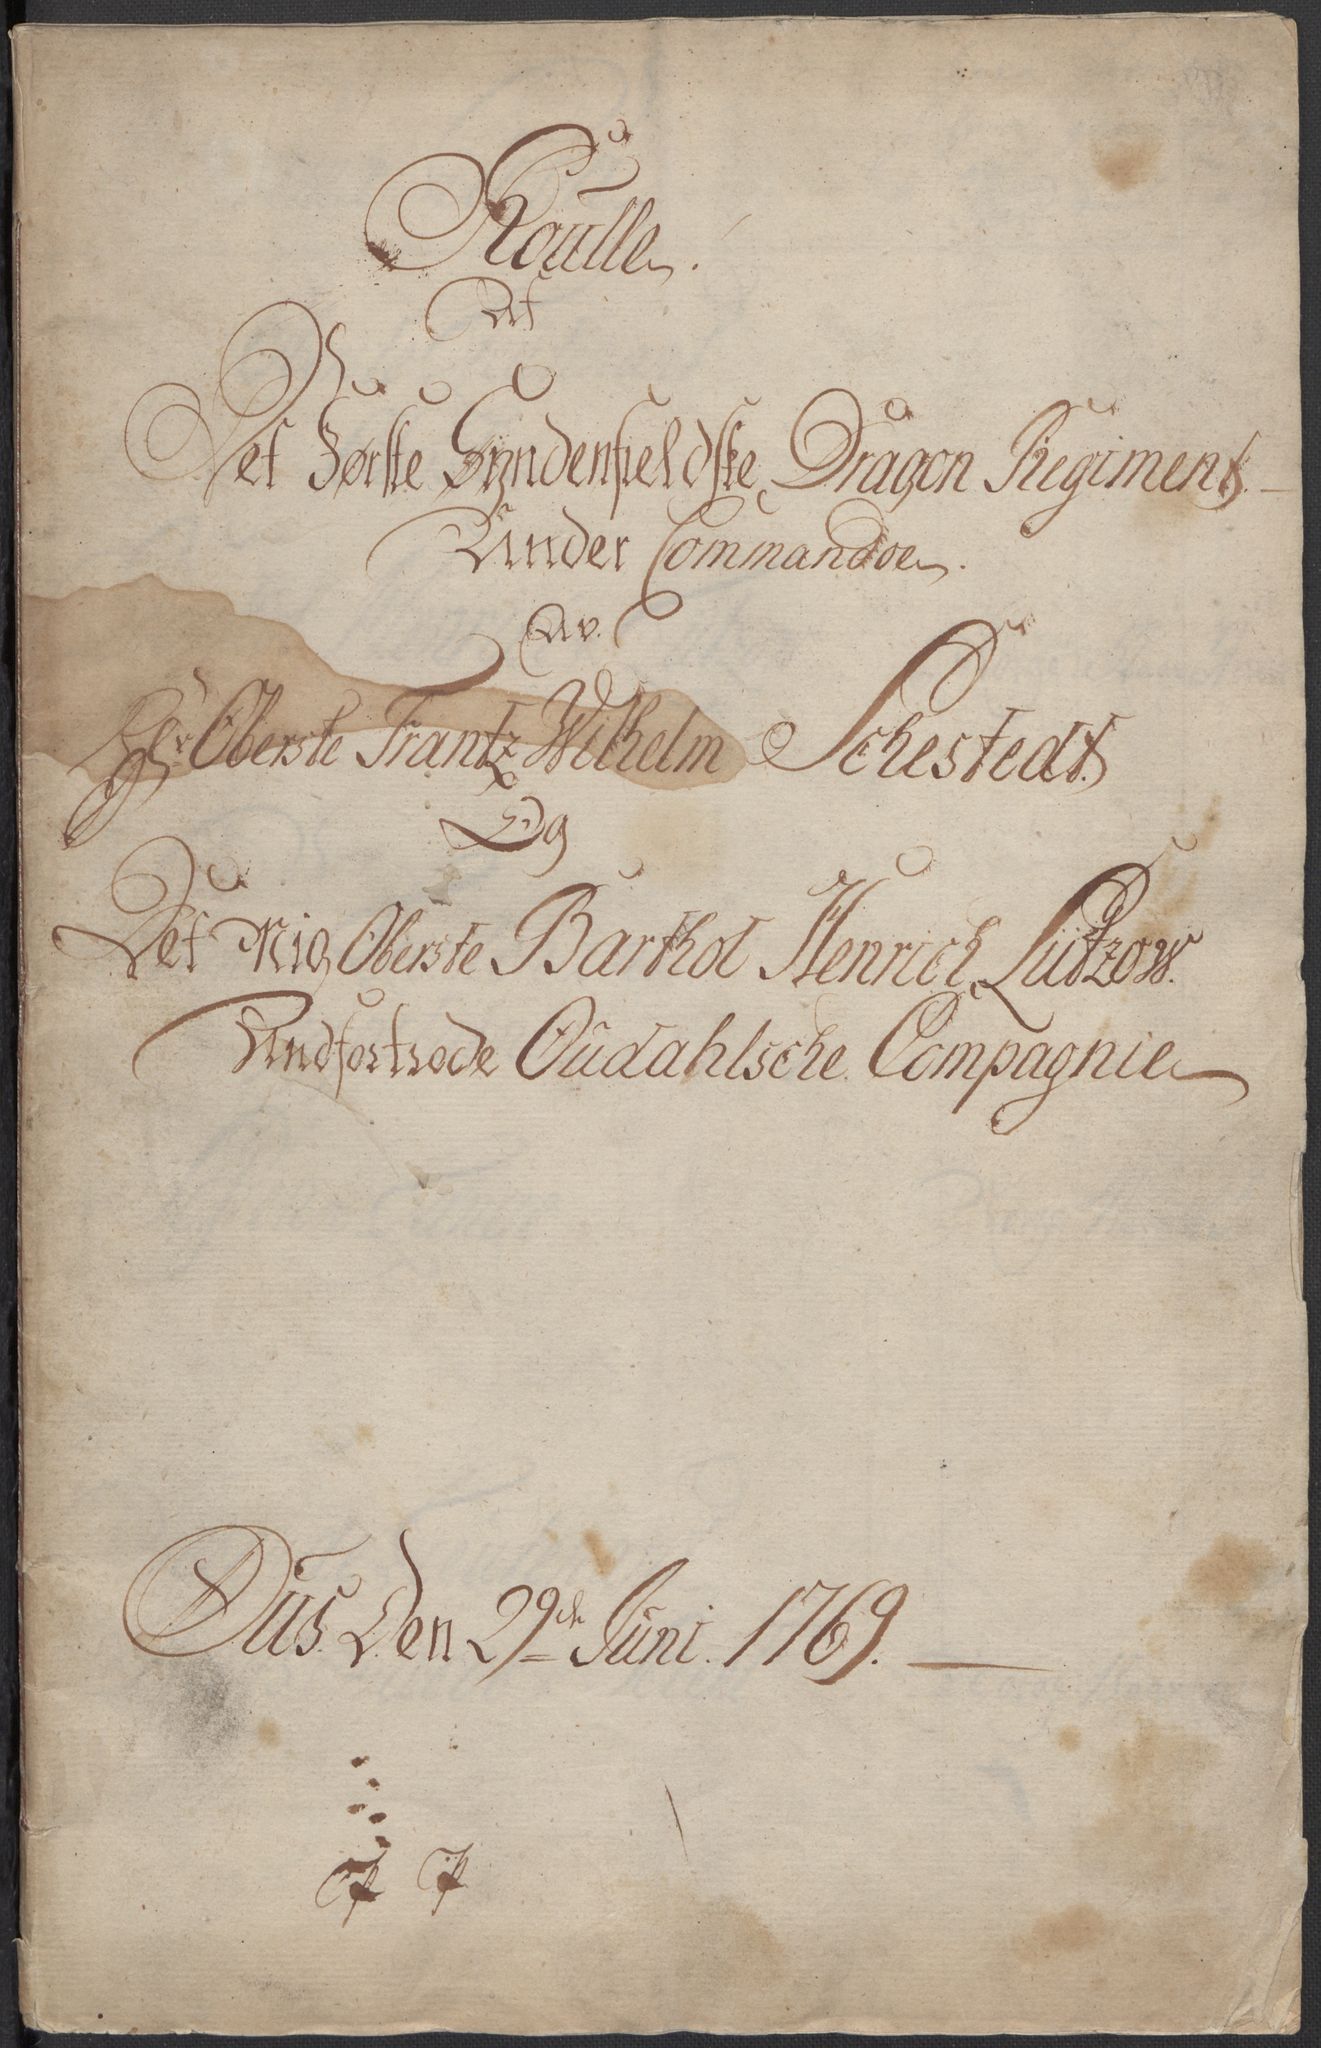 Roulle.
Af
Det Første Syndenfieldske Dragon Regiment.
Under Commandoe.
Av.
Hr Oberste Frantz Wilhelm Schestedt.
Og
Det Mig Oberste Barthol Henrich Lützow.
Andfortrode Oudahlsche Compagnie
Den 29de Juni. 1769.